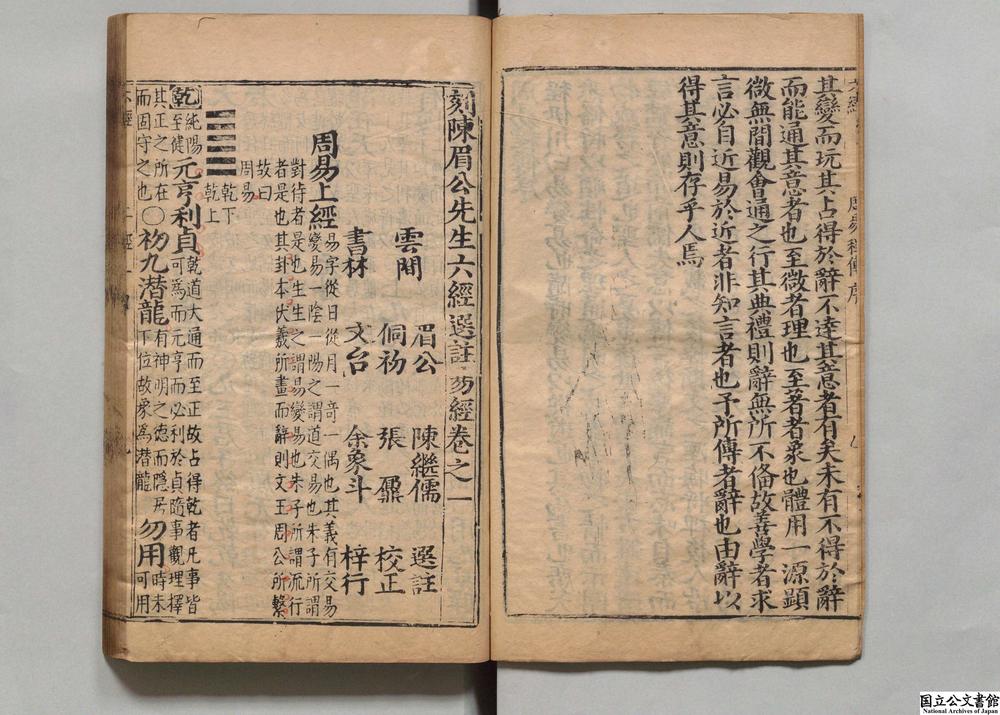 其變而玩其占得於辭不達其意者有矣未有不得於辭
而能通其意者也至微者理也至著者象也體用一源顕
微無間觀會通之行其典禮則辭無所不俻故善學者求
言必自近易於近者非知言者也予所傳者辭也由辭以
得其意則存乎人焉
刻陳眉公先生六經選註易經卷之一
雲間 眉公 陳繼儒 選註
侗初 張鼐 校正
書林 文台 余象斗 梓行
周易上經 易字從日從月一奇一偶也其義有交易
變易一陰一陽之謂道交易也朱子所謂
對待者是也生生之謂易變易也朱子所謂流行
者是也其卦本伏羲所畫而辭則文王周公所繫
故曰
周易
乾下
乾上
乾 純陽
至健 元亨利貞 乾道大通而至正故占得乾者凡事皆
可爲而元亨而必利於貞隨事觀理擇
其正之所在
而固守之也 〇初九潜龍 有神明之德而隱居時未
下位故象爲潜龍 勿用 可用
国立公文書館
National Archives of Japan